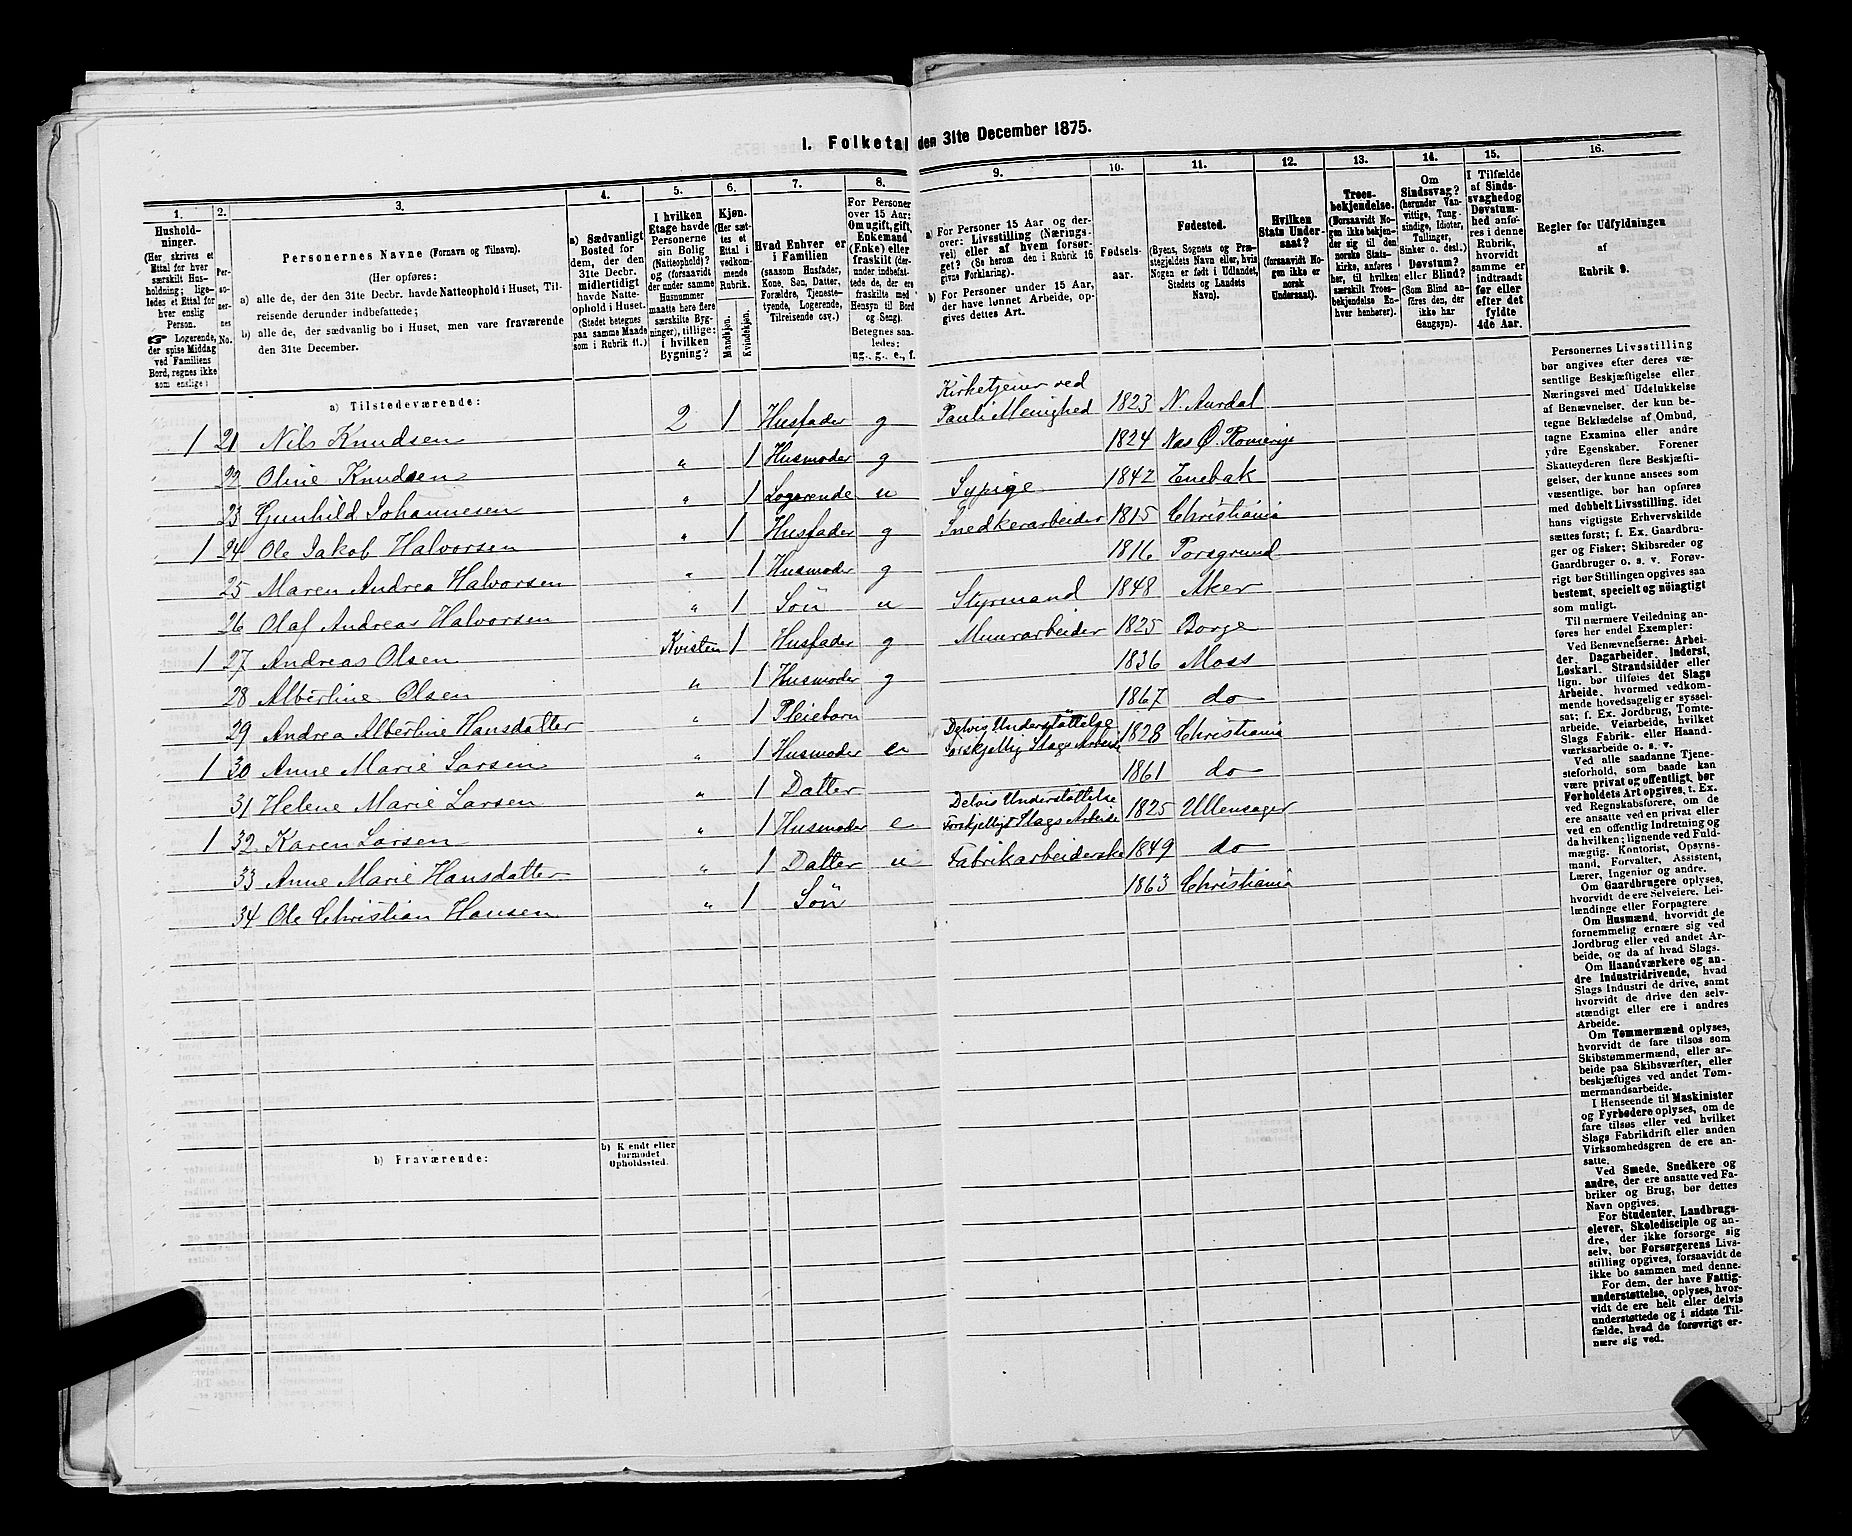 I. Folketal den 31te December 1875.
1.
2.
3.
4.
5.
6.
7.
8.
9.
10.
11.
12.
13.
14.
15.
16.
Hushold-
ninger.
(Her skrives et
Ettal for hver
særskilt Hus-
holdning; lige-
ledes et Ettal for
hver enslig
Person.
☞ Logerende,
der spise Middag
ved Familiens
Bord, regnes ikke
som enslige)
Per-
so-
ner-
nes
No.
Personernes Navne (Fornavn og Tilnavn).
(Her opføres:
a) alle de, der den 31te Decbr. havde Natteophold i Huset, Til-
reisende derunder indbefattede;
b) alle de, der sædvanlig bo i Huset, men vare fraværende
den 31te December.
a) Sædvanligt
Bosted for
dem, der den
31te Decbr.
midlertidigt
havde Natte-
ophold i Huset.
(Stedet betegnes
paa samme Maade
som i Rubrik 11.)
I hvilken
Etage havde
Personerne
sin Bolig
(Natteophold)?
og (forsaavidt
der under samme
Husnummer
maatte høre flere
særskilte Byg-
ninger), tillige:
i hvilken
Bygning?
Kjøn.
(Her sæt-
tes et
Ettal i
vedkom-
mende
Rubrik.
Mandkjøn.
Kvindekjøn.
Hvad Enhver er
i Familien
(saasom Husfader,
Kone, Søn, Datter,
Forældre, Tjeneste-
tyende, Logerende,
Tilreisende osv.)
For Personer
over 15 Aar:
Om ugift, gift,
Enkemand
(Enke) eller
fraskilt (der-
under indbefat-
tede de, der ere
fraskilte med
Hensyn til Bord
og Seng).
Betegnes saa-
ledes:
ug., g., e., f.
a) For Personer 15 Aar og der-
over: Livsstilling (Nærings-
vei) eller af hvem forsør-
get? (Se herom den i Rubrik 16
givne Forklaring).
b) For Personer under 15 Aar,
der have lønnet Arbeide, op-
gives dettes Art.
Fødsels-
aar.
Fødested.
(Byens, Sognets og Præ-
stegjeldets Navn eller, hvis
Nogen er født i Udlandet,
Stedets og Landets
Navn).
Hvilken
Stats Under-
saat?
(forsaavidt No-
gen ikke er
norsk
Undersaat).
Troes-
bekjendelse.
(Forsaavidt No-
gen ikke bekjen-
der sig til den
norske Stats-
kirke, anføres
her, til hvilken
særskilt Troes-
bekjendelse En-
hver henhører).
Om
Sindssvag?
(herunder Van-
vittige, Tung-
sindige, Idioter,
Tullinger,
Sinker o. desl.)
Døvstum?
eller Blind?
(Som Blind an-
føres den, der
ikke har
Gangsyn).
I Tilfælde
af Sinds-
svaghed og
Døvstum-
hed anfø-
res i denne
Rubrik,
hvorvidt
samme er
indtraadt
før eller
efter det
fyldte
4de Aar.
Regler for Udfyldningen
af
Rubrik 9.
a) Tilstedeværende:
1 21 Nils Knudsen 2 1 Husfader g Kirketjener ved Pauli Menighed 1823 N. Aurdal
22 Oline Knudsen " 1 Husmoder g 1824 Nas Ø. Romerige
23 Gunhild Johannesen " 1 Logerende u Sypige 1842 Enebak
1 24 Ole Jakob Halvorsen " 1 Husfader g Snedkerarbeider 1815 Christiania
25 Maren Andrea Halvorsen " 1 Husmoder g 1816 Porsgrund
26 Olaf Andreas Halvorsen " 1 Søn u Styrmand 1848 Aker
1 27 Andreas Olsen Kvisten 1 Husfader g Muurarbeider 1825 Borge
28 Albertine Olsen " 1 Husmoder g 1836 Moss
29 Andrea Albertine Hansdatter " 1 Pleiebarn 1867 do
1 30 Anne Marie Larsen " 1 Husmoder e Delvis Understøttelse Forskjellig Slags Arbeide 1828 Christiania
31 Helene Marie Larsen " 1 Datter 1861 do
1 32 Karen Larsen " 1 Husmoder e Delvis Understøttelse Forskjelligt Slags Arbeide 1825 Ullensager
33 Anne Marie Hansdatter " 1 Datter u Fabrikarbeiderske 1849 do
34 Ole Christian Hansen " 1 Søn 1863 Christiania
b) Fraværende:
b) Kjendt eller
formodet
Opholdssted.
Personernes Livsstilling
bør angives efter deres væ-
sentlige Beskjæftigelse eller
Næringsvei med Udelukkelse
af Benævnelser, der kun be-
tegne Beklædelse af Ombud,
tagne Examina eller andre
ydre Egenskaber. Forener
Skatteyderen flere Beskjæfti-
gelser, der kunne ansees som
væsentlige, bør han opføres
med dobbelt Livsstilling, idet
hans vigtigste Erhvervskilde
sættes først; f. Ex. Gaardbru-
ger og Fisker; Skibsreder og
Gaardbruger o. s. v. Forøv-
rigt bør Stillingen opgives saa
bestemt, specielt og nöiagtigt
som muligt.
Til nærmere Veiledning an-
føres her endel Exempler:
Ved Benævnelserne: Arbei-
der, Dagarbeider, Inderst,
Løskarl, Strandsidder eller
lign. bør tilføies det Slags
Arbeide, hvormed vedkom-
mende hovedsagelig er syssel-
sat; f. Ex. Jordbrug, Tomte-
arbeide, Veiarbeide, hvilket
Slags Fabrik- eller Haand-
værksarbeide o. s. v.
Ved alle saadanne Tjene-
steforhold, som baade kan
være privat og offentligt, bør
Forholdets Art opgives, t. Ex.
ved Regnskabsførere, om de
ere ved en offentlig Indretning og
da hvilken; lignende ved Fuld-
mægtig, Kontorist, Opsyns-
mand, Forvalter, Assistent,
Lærer, Ingeniør og andre.
Om Gaardbrugere oplyses,
hvorvidt de ere Selveiere, Lei-
lændinge eller Forpagtere.
Om Husmænd, hvorvidt de
fornemmelig ernære sig ved
Jordbrug eller ved andet Ar-
beide, og da af hvad Slags.
Om Haandværkere og an-
dre Industridrivende, hvad
Slags Industri de drive, samt
hvorvidt de drive den selv-
stændigt eller ere i andres
Arbeide.
Om Tømmermænd oplyses,
hvorvidt de fare tilsøs som
Skibstømmermænd, eller ar-
beide paa Skibsværfter, eller
beskjæftiges ved andet Tøm-
mermandsarbeide.
I Henseende til Maskinister
og Fyrbødere oplyses, om de
fare tilsøs eller ved hvilket
Slags Fabrikdrift eller anden
Virksomhedsgren de ere an-
satte.
Ved Smede, Snedkere og
andre, der ere ansatte ved Fa-
briker og Brug, bør dettes
Navn opgives.
For Studenter, Landbrugs-
elever, Skoledisciple og an-
dre, der ikke forsørge sig
selv, bør Forsørgerens Livs-
stilling opgives, forsaavidt de
ikke bo sammen med denne.
For dem, der have Fattig-
understøttelse, oplyses, hvor-
vidt de ere helt eller delvis
understøttede og i sidste Til-
fælde, hvad de forøvrigt er-
nære sig ved.